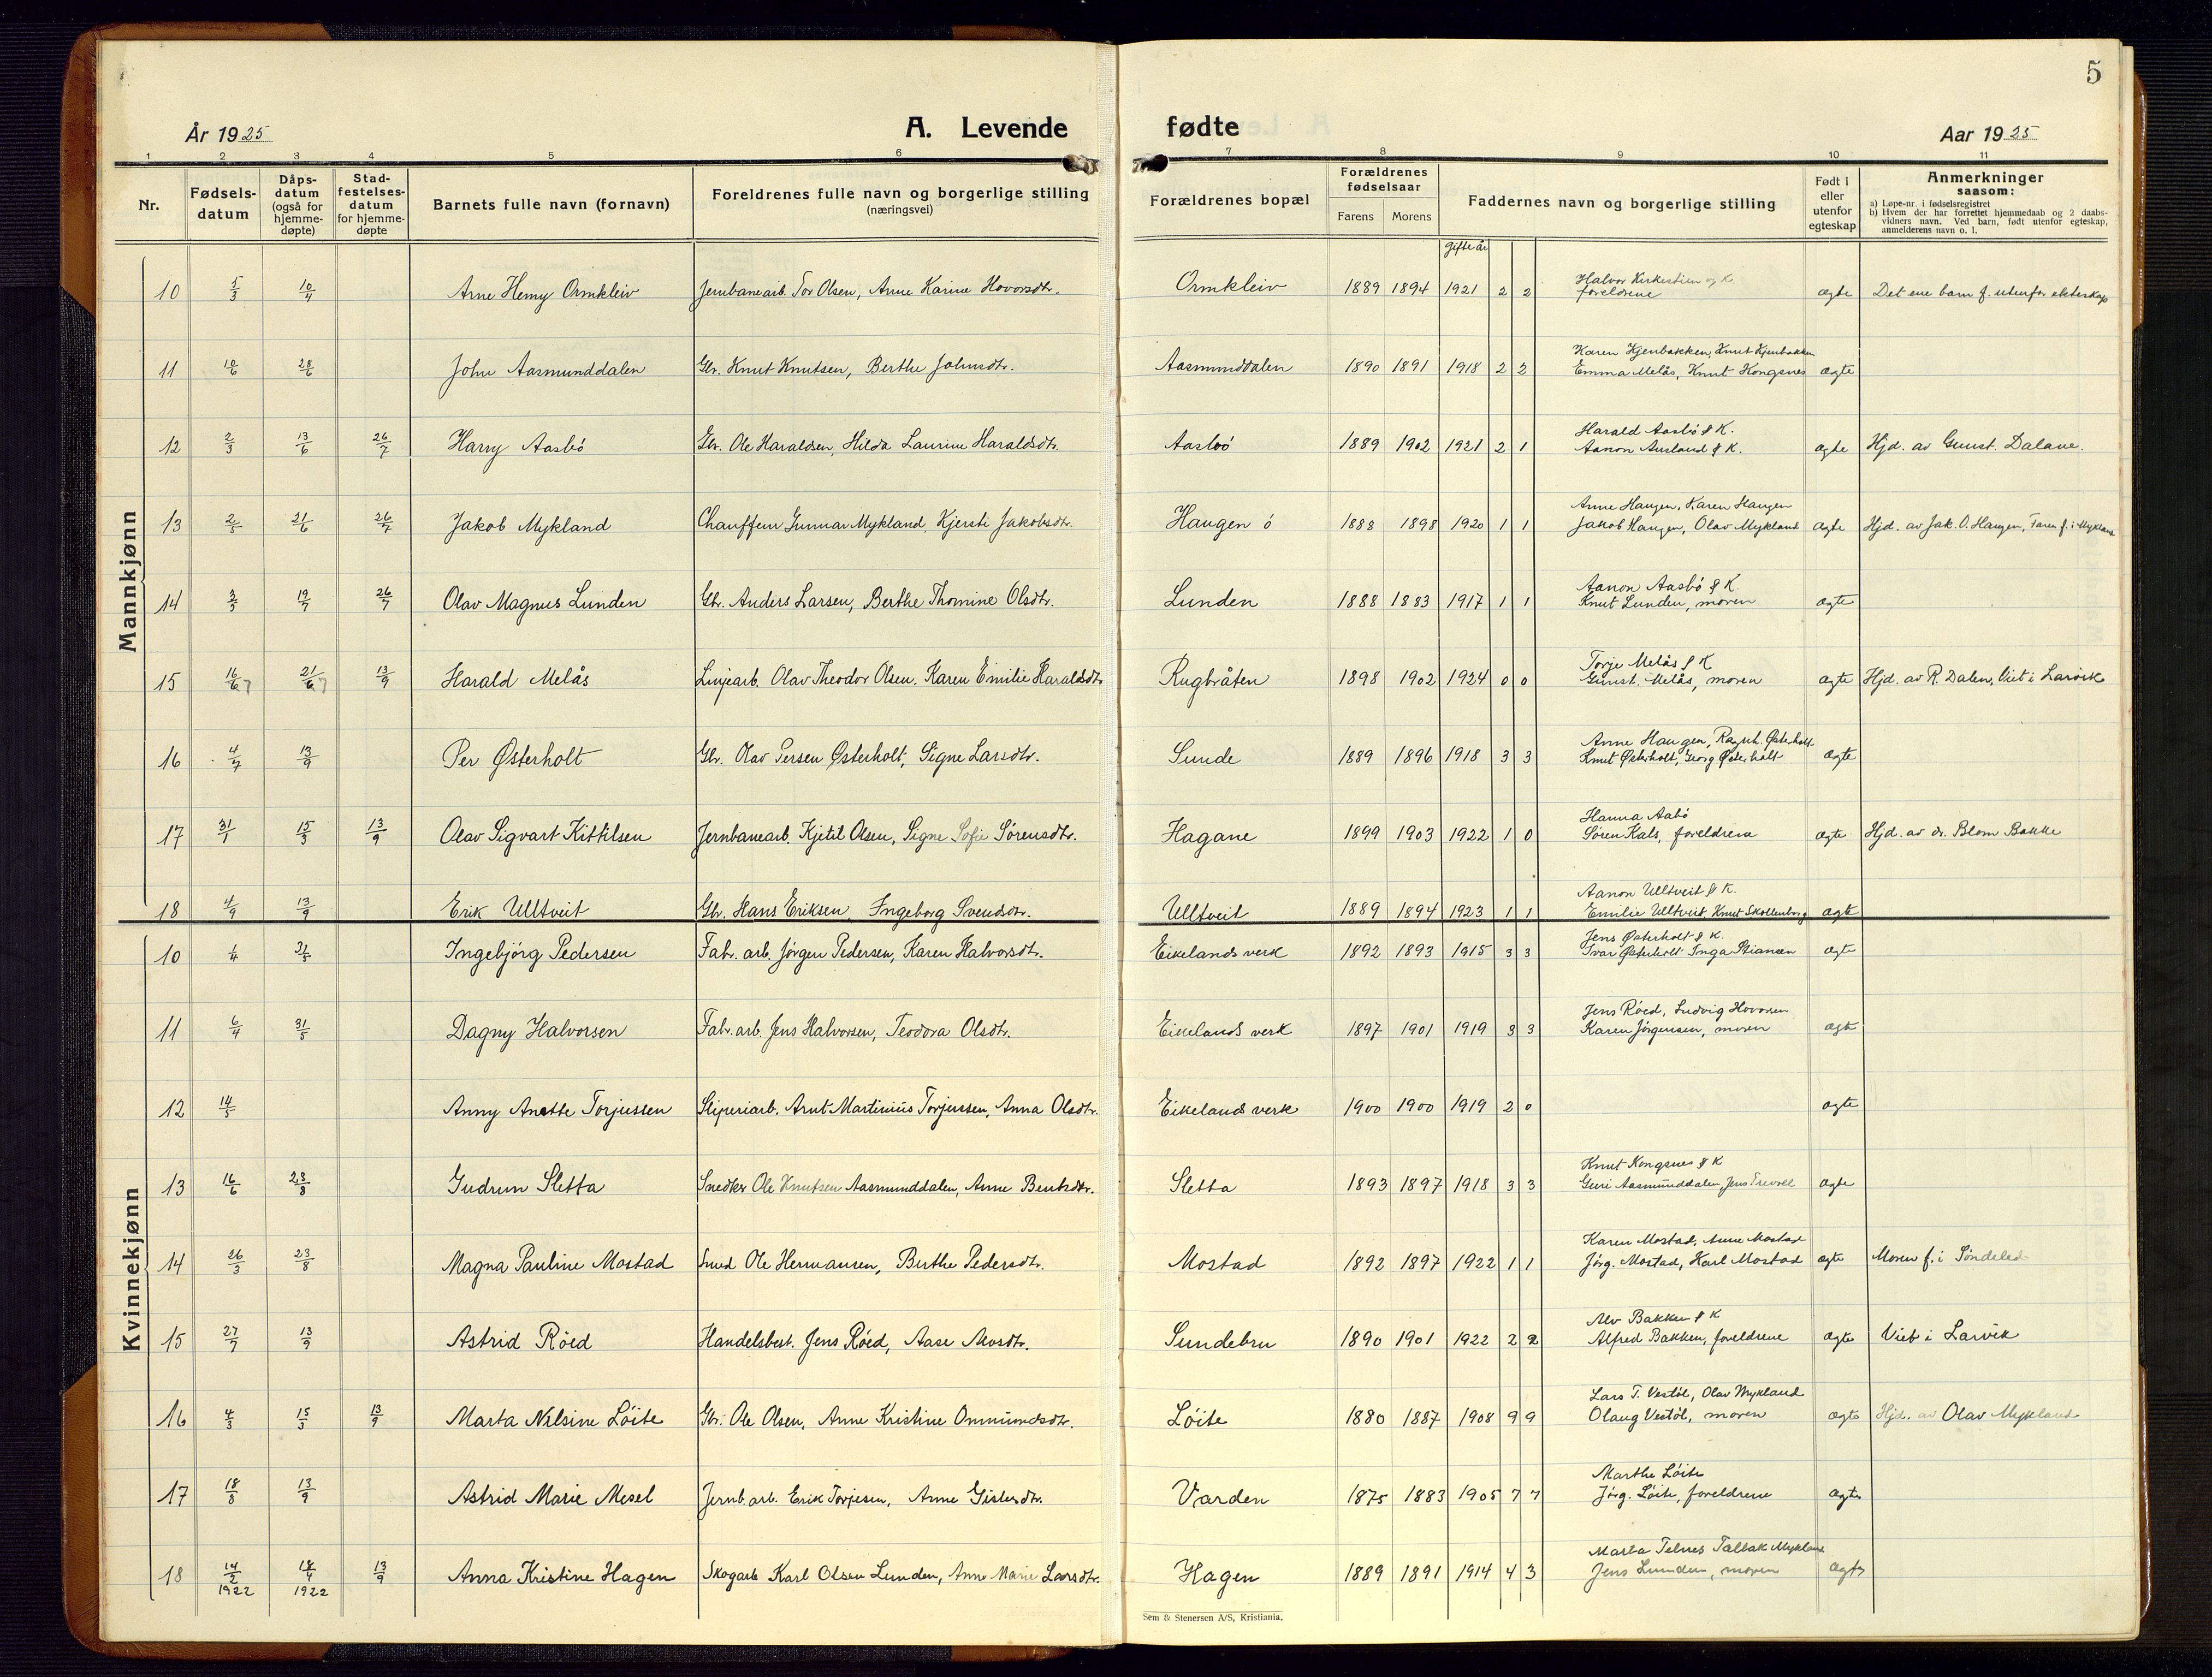 5
År 1925 A. Levende fødte Aar 1925
1 2 3 4 5 6 7 8 9 10 11
Nr. Fødsels-datum Dåps-datum (også for hjemme-døpte) Stad-festelses-datum for hjemme-døpte Barnets fulle navn (fornavn) Foreldrenes fulle navn og borgerlige stilling (næringsvei) Forældrenes bopæl Forældrenes fødselsaar Farens Morens Faddernes navn og borgerlige stilling Født i eller utenfor egteskap Anmerkninger saasom:
a) Løpe-nr. i fødselsregistret
b) Hvem der har forrettet hjemmedaab og 2 daabs-vidners navn. Ved barn, født utenfor egteskap, anmelderens navn o. l.
Gifte år
Mannkjønn
Halvor Kirkestien og K.
10 5/3 10/4 Arne Henry Ormkleiv Jernbanearb. Tor Olsen, Anne Karine Hovorsdtr. Ormkleiv 1889 1894 1921 2 2 foreldrene ægte Det ene barn f. utenfor ekteskap
Karen Hjenbakken, Knut Hjenbakken
11 10/6 28/6 John Aasmunddalen Gbr. Knut Knutsen, Berthe Johnsdtr. Aasmunddalen 1890 1891 1918 2 2 Emma Melås, Knut Kongsnes ægte
Harald Aasbö & K.
12 2/3 13/6 26/7 Harry Aasbö Gbr. Ole Haraldsen, Hilda Laurine Haraldsdtr. Aasbö 1889 1902 1921 2 1 Aanon Ausland & K. ægte Hjd. av Gunst. Dalane.
Anne Haugen, Karen Haugen
13 2/5 21/6 26/7 Jakob Mykland Chauffeur Gunnar Mykland, Kjersti Jakobsdtr. Haugen ö 1888 1898 1920 1 1 Jakob Haugen, Olav Mykland ægte Hjd. av Jak. O. Haugen, Faren f. i Mykland
Aanon Aasbö & K
14 3/5 19/7 26/7 Olav Magnus Lunden Gbr. Anders Larsen, Berthe Thomine Olsdtr. Lunden 1888 1883 1917 1 1 Knut Lunden, moren ægte
Torje Melås & K
15 16/6 7 21/6 7 13/9 Harald Melås Linjearb. Olav Theodor Olsen, Karen Emilie Haraldsdtr Rugbråten 1898 1902 1924 0 0 Gunst. Melås, moren ægte Hjd. av R. Dalen, Viet i Larvik
Anne Haugen, Ragnh. Østerholt
16 4/7 13/9 Per Østerholt Gbr. Olav Persen Østerholt, Signe Larsdtr. Sunde 1889 1896 1918 3 3 Knut Østerholt, Georg Østerholt ægte
Hanna Aabö
17 31/1 15/3 13/9 Olav Sigvart Kittilsen Jernbanearb. Kjetil Olsen, Signe Sofie Sörensdtr. Hagane 1899 1903 1922 1 0 Sören Kals, foreldrene ægte Hjd. av dr. Blom Bakke
Aanon Ulltveit & K.
18 4/9 13/9 Erik Ulltveit Gbr. Hans Eriksen, Ingeborg Svendsdtr. Ulltveit 1889 1894 1923 1 1 Emilie Ulltveit Knut Skollenborg ægte
Kvinnekjønn
Jens Østerholt & K.
10 1/4 31/5 Ingebjörg Pedersen Fabr. arb. Jörgen Pedersen, Karen Halvorsdtr. Eikelands verk 1892 1893 1915 3 3 Ivar Østerholt Inga Stiansen ægte
Jens Röed, Ludvig Hovorsen
11 6/4 31/5 Dagny Halvorsen Fabr. arb. Jens Halvorsen, Teodora Olsdtr. Eikelands verk 1897 1901 1919 3 3 Karen Jörgensen, moren ægte
12 14/5 Anny Anette Torjussen Sliperiarb. Arnt Martinius Torjussen, Anna Olsdtr. Eikelands verk 1900 1900 1919 2 0 ægte
Knut Kongsnes & K
13 16/6 23/8 Gudrun Sletta Snedker Ole Knutsen Aasmunddalen, Anne Bentsdtr. Sletta 1893 1897 1918 3 3 Guri Aasmunddalen, Jens ægte
Karen Mostad, Anne Mostad
14 26/3 23/8 Magna Pauline Mostad Smed Ole Hermansen, Berthe Pedersdtr. Mostad 1892 1897 1922 1 1 Jörg. Mostad, Karl Mostad ægte Moren f. i Söndeled
Alv Bakken & K
15 27/7 13/9 Astrid Röed Handelsbest. Jens Röed, Aase Alvsdtr. Sundebru 1890 1901 1922 2 2 Alfred Bakken, foreldrene ægte Viet i Larvik
Lars T. Vestöl, Olav Mykland
16 4/3 15/3 13/9 Marta Nilsine Löite Gbr. Ole Olsen, Anne Kristine Ommundsdtr. Löite 1880 1887 1908 9 9 Olaug Vestöl, moren ægte Hjd. av Olav Mykland
Marthe Löite
17 18/8 13/9 Astrid Marie Mesel Jernb. arb. Erik Torjesen, Anne Gislesdtr. Varden 1875 1883 1905 7 7 Jörg. Löite, foreldrene ægte
Marta Telnes Tallak Mykland
18 14/2 1922 18/4 1922 13/9 Anna Kristine Hagen Skogarb Karl Olsen Lunden, Anne Marie Larsdtr. Hagen 1889 1891 1914 4 3 Jens Lunden, moren ægte
Sem & Stenersen A/S, Kristiania.